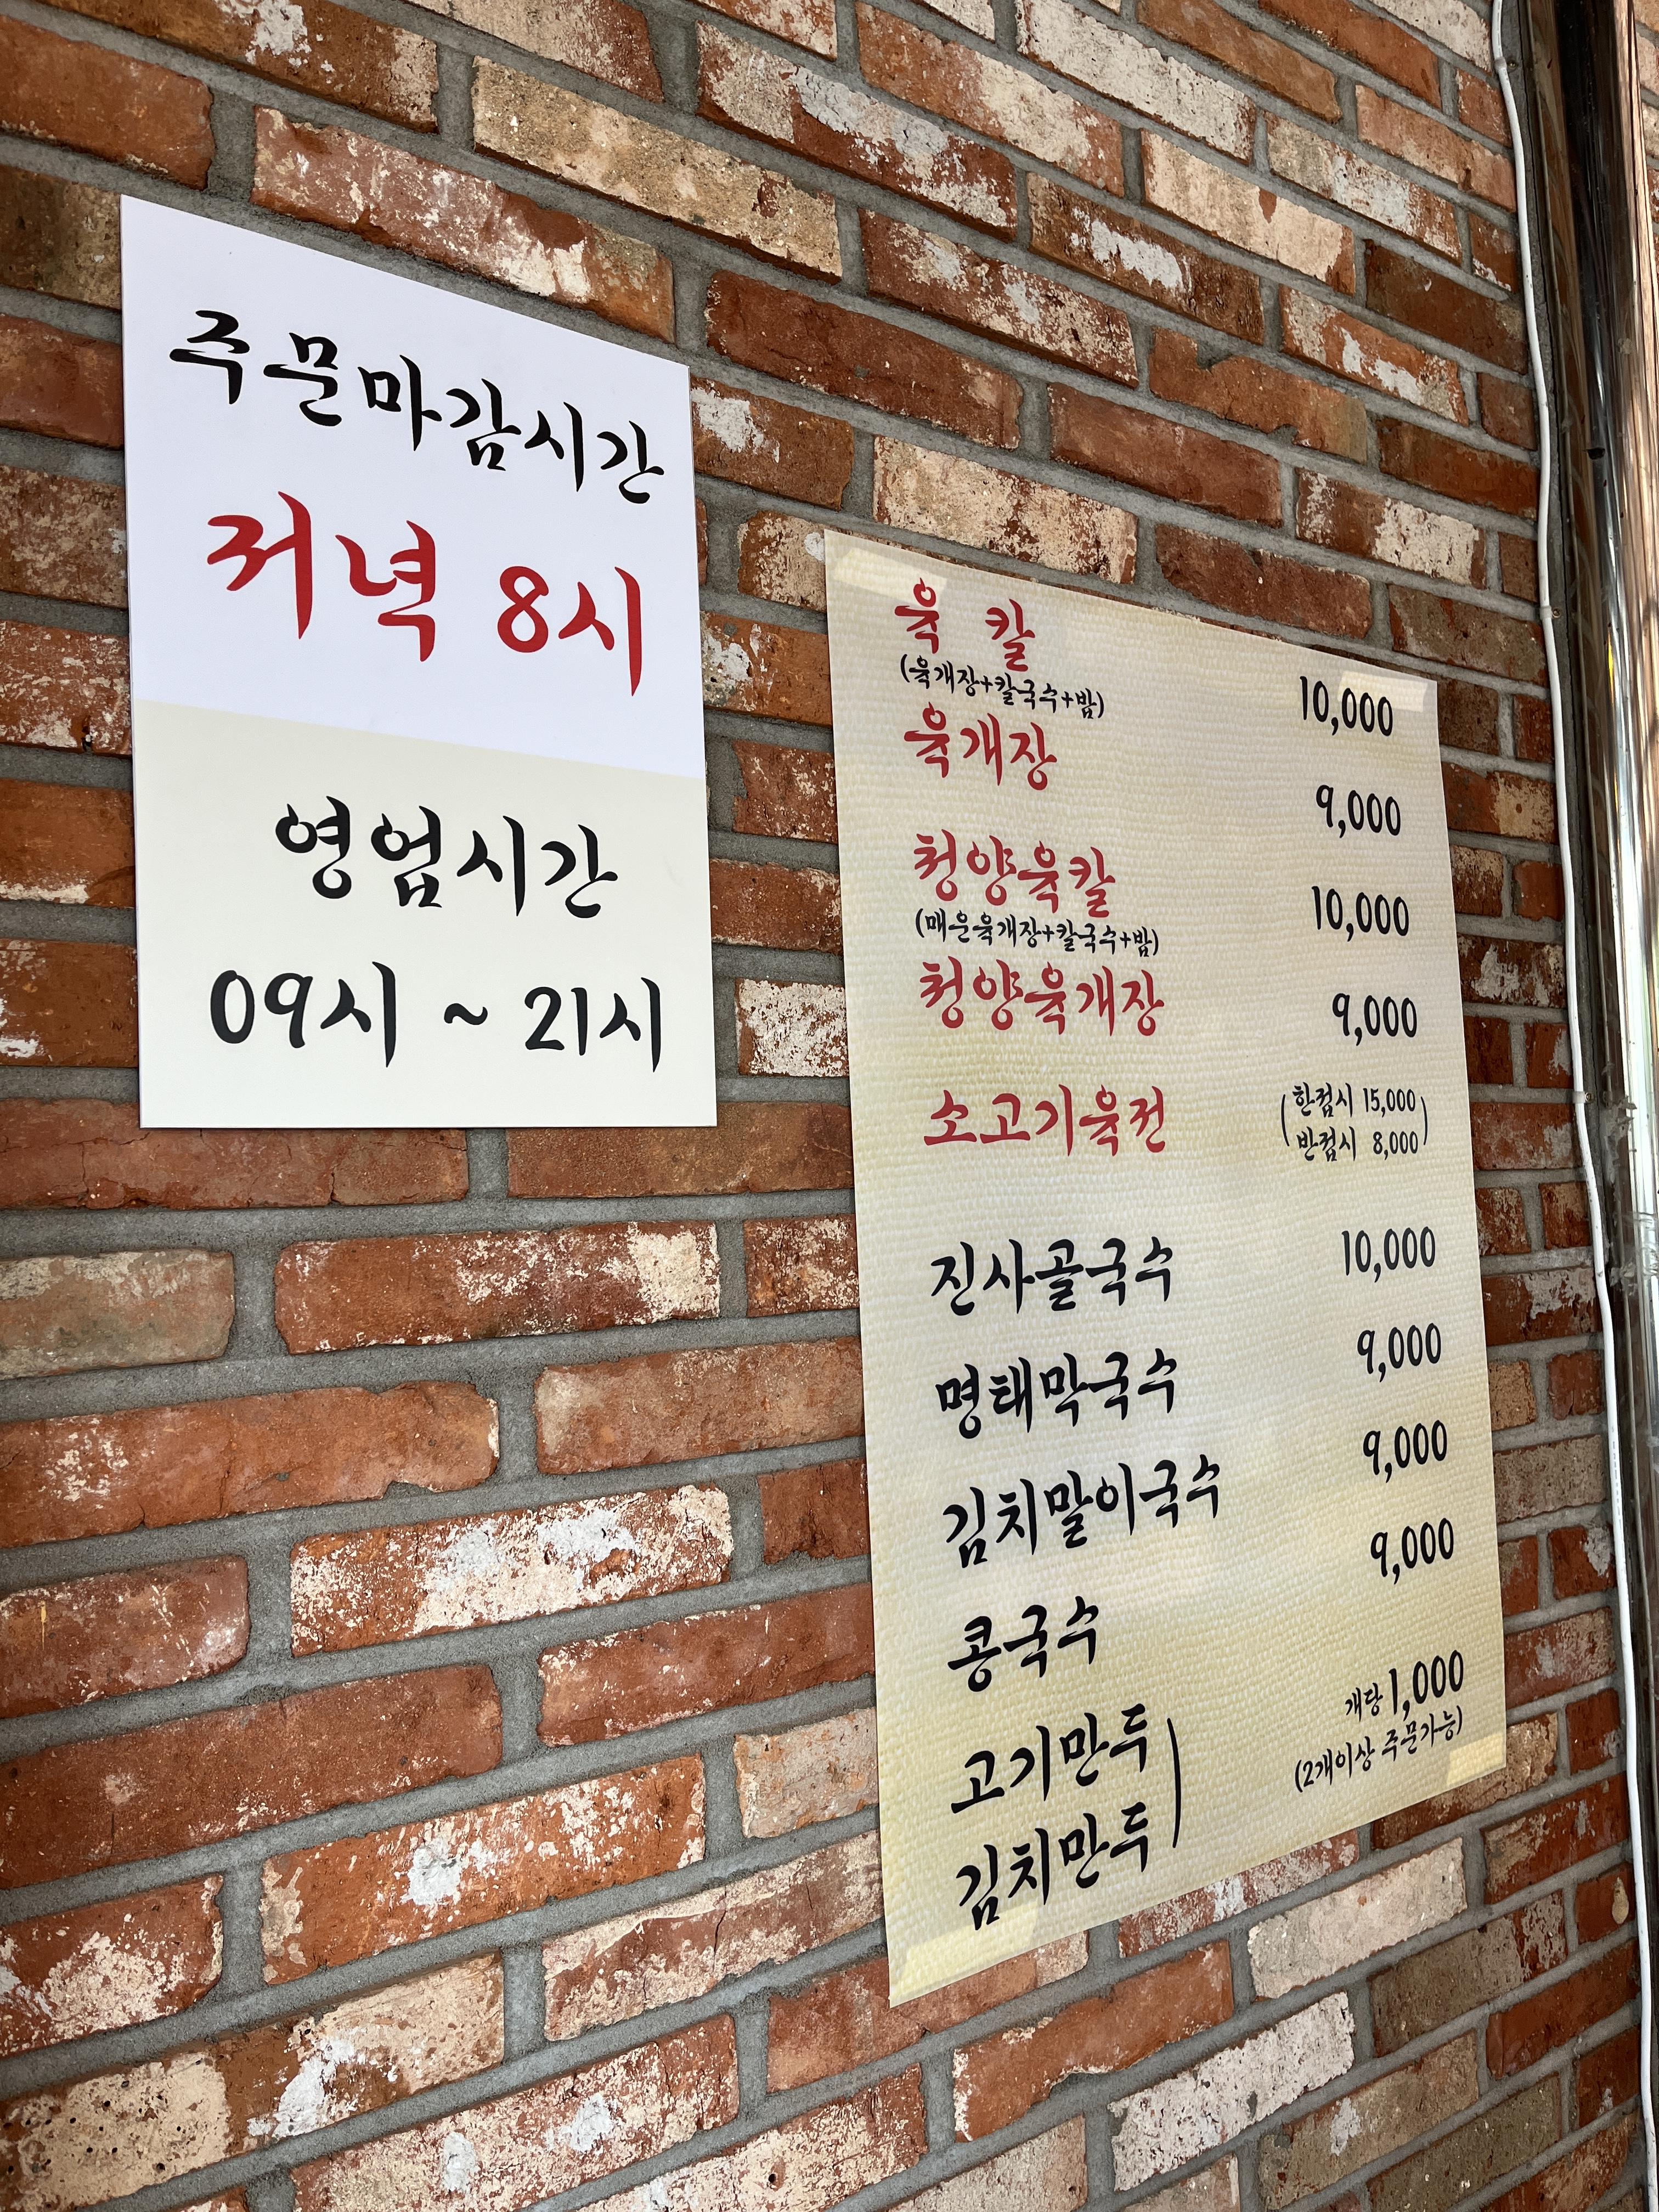 주문마감시간
저녁 8시
영업시간
09시 ~ 21시
육 칼 10,000
(육개장+칼국수+밥)
육개장 9,000
청양육칼 10,000
(매운육개장+칼국수+밥)
청양육개장 9,000
소고기육전 (한접시 15,000
반접시 8,000)
진사골국수 10,000
명태막국수 9,000
김치말이국수 9,000
콩국수 9,000
고기만두 개당 1,000
김치만두 (2개이상 주문가능)